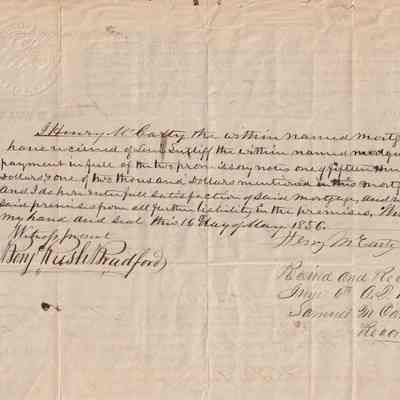 I Henry McCarty the within named mortg
have received of Levi Sutliff the within named mortga
payment in full of the two promissory notes one of fifteen hun
dollars & one of two thousand dollars mentioned in this mort
And I do here enter full satisfaction of said mortgage, and
said premises from all further liability in the premises.
my hand and seal this 16 day of May 1856.
Witness present
Henry McCarty
Benj Rush Bradford
Recd and Re
Samuel M
Recor